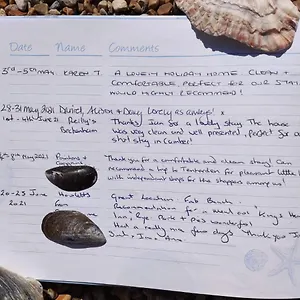 Date Name Comments
5th-5th May. KAREN T A LOVELY HOLIDAY HOME. CLEAN +
COMFORTABLE, PERFECT FOR OUR STAY.
WOULD HIGHLY RECOMMEND!
28-31 May 2021 David, Alison + Doug Lovely as always! x
1st - 4th June 21 Reilly's Thanks! for a lovely stay. The house
was very clean and well presented, perfect for our
short stay in Camber!
6th-8th May 2021 Thank you for a comfortable and clean stay! Can
recommend a trip to Tenterden for pleasant little
with independent shops for the shoppers among us!
20-25 June Great location. Fab Beach.
2021 from Recommendation for a meal out "Kings Head
Inn", Rye. Park + Pets wonderful!
Had a really nice few days. Thank you